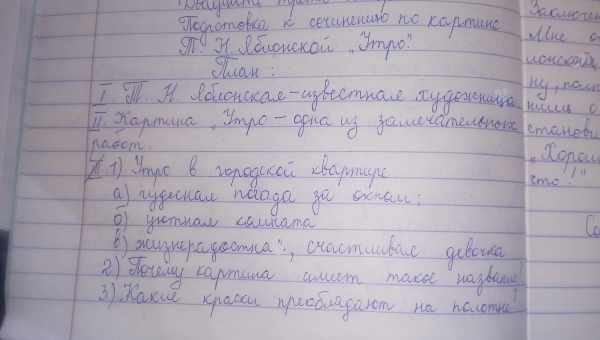 Двадцать
Подготовка к сочинению по картине
Т. Н. Яблонской „Утро".
План:
I. Т. Н Яблонская – известная художница
II. Картина „Утро – одна из замечательных
работ.
1) Утро в городской квартире
а) чудесная погода за окном;
б) уютная комната
в) жизнерадостна.., счастливая девочка
2) Почему картина имеет такое название?
3) Какие краски преобладают на полотне?
Заключен
Мне о
лонской
ну, пом
нила о
станови
„Хорош
что!"
Со